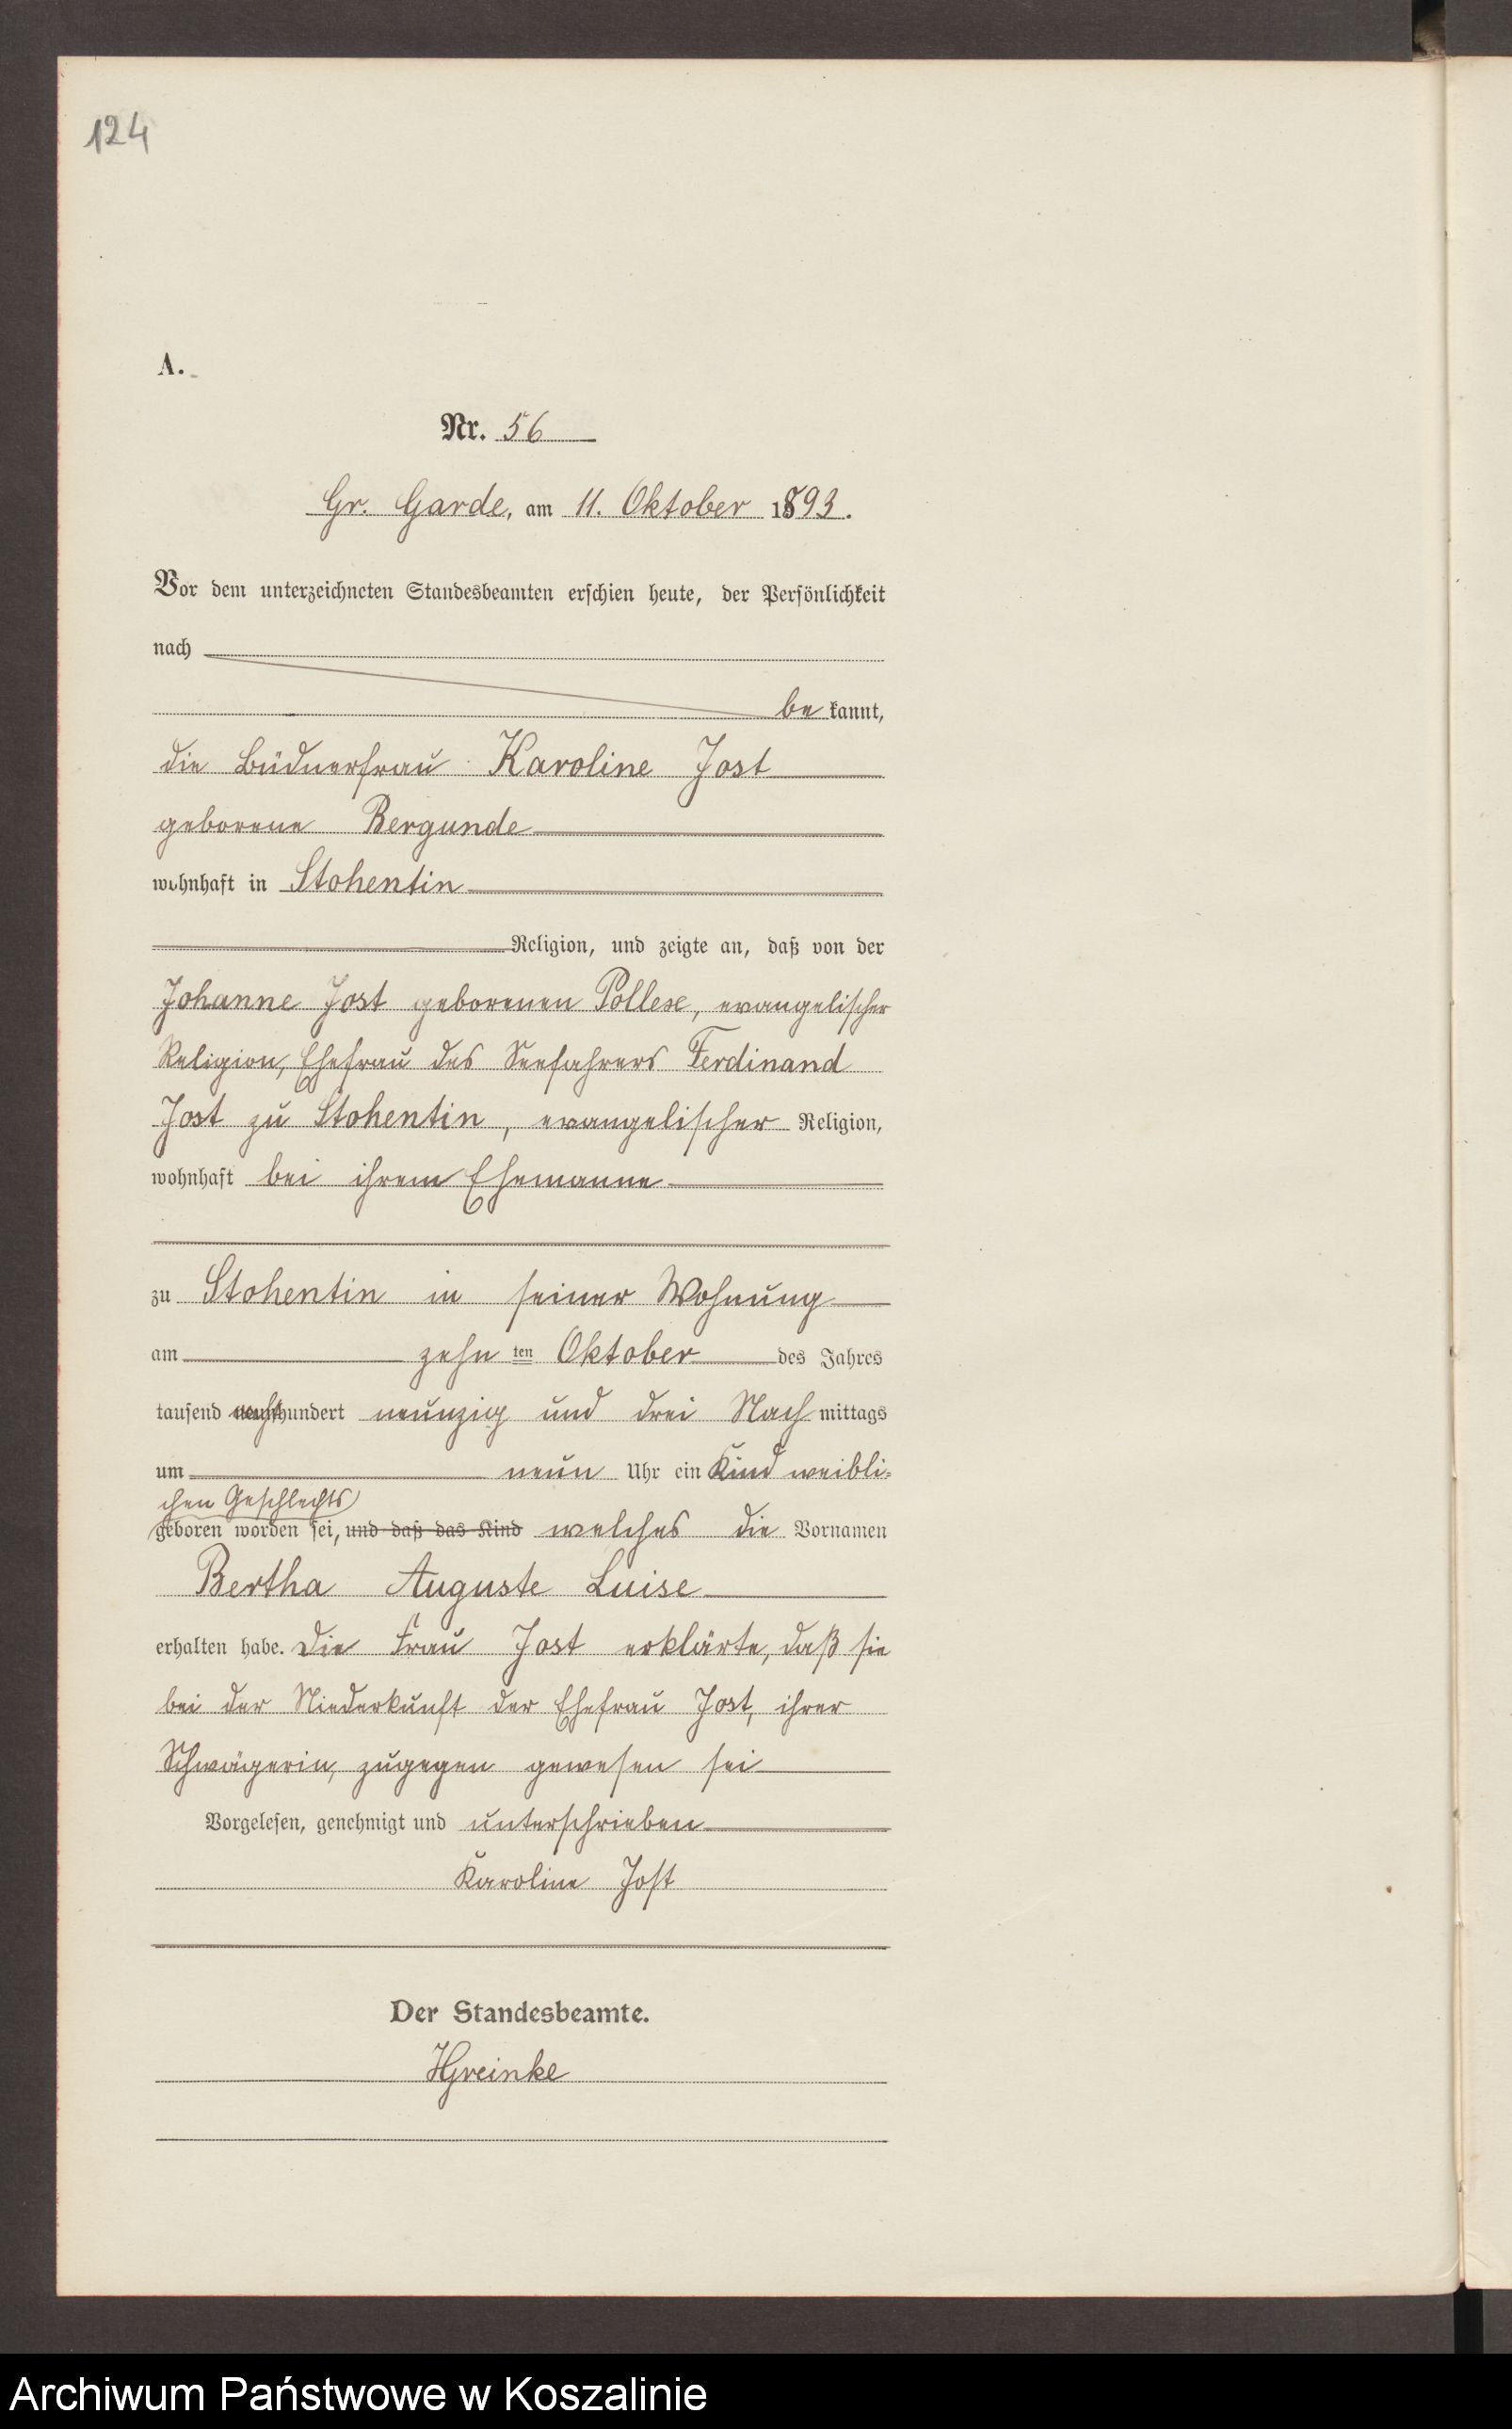 124
A.
Nr. 56
Gr. Garde, am 11. Oktober 1893.
Vor dem unterzeichneten Standesbeamten erschien heute, der Persönlichkeit
nach
be kannt,
die Büdnerfrau Karoline Jost
geborene Bergunde
wohnhaft in Stohentin
Religion, und zeigte an, daß von der
Johanne Jost geborenen Pollex, evangelischer
Religion, Ehefrau des Seefahrers Ferdinand
Jost zu Stohentin, evangelischer Religion,
wohnhaft bei ihrem Ehemanne
zu Stohentin in seiner Wohnung
am zehn ten Oktober des Jahres
tausend achthundert neunzig und drei Nach mittags
um neun Uhr ein Kind weibli-
chen Geschlechts
geboren worden sei, und daß das Kind welches die Vornamen
Bertha Auguste Luise
erhalten habe. Die Frau Jost erklärte, daß sie
bei der Niederkunft der Ehefrau Jost, ihrer
Schwägerin, zugegen gewesen sei
Vorgelesen, genehmigt und unterschrieben
Karoline Jost
Der Standesbeamte.
HGreinke
Archiwum Państwowe w Koszalinie